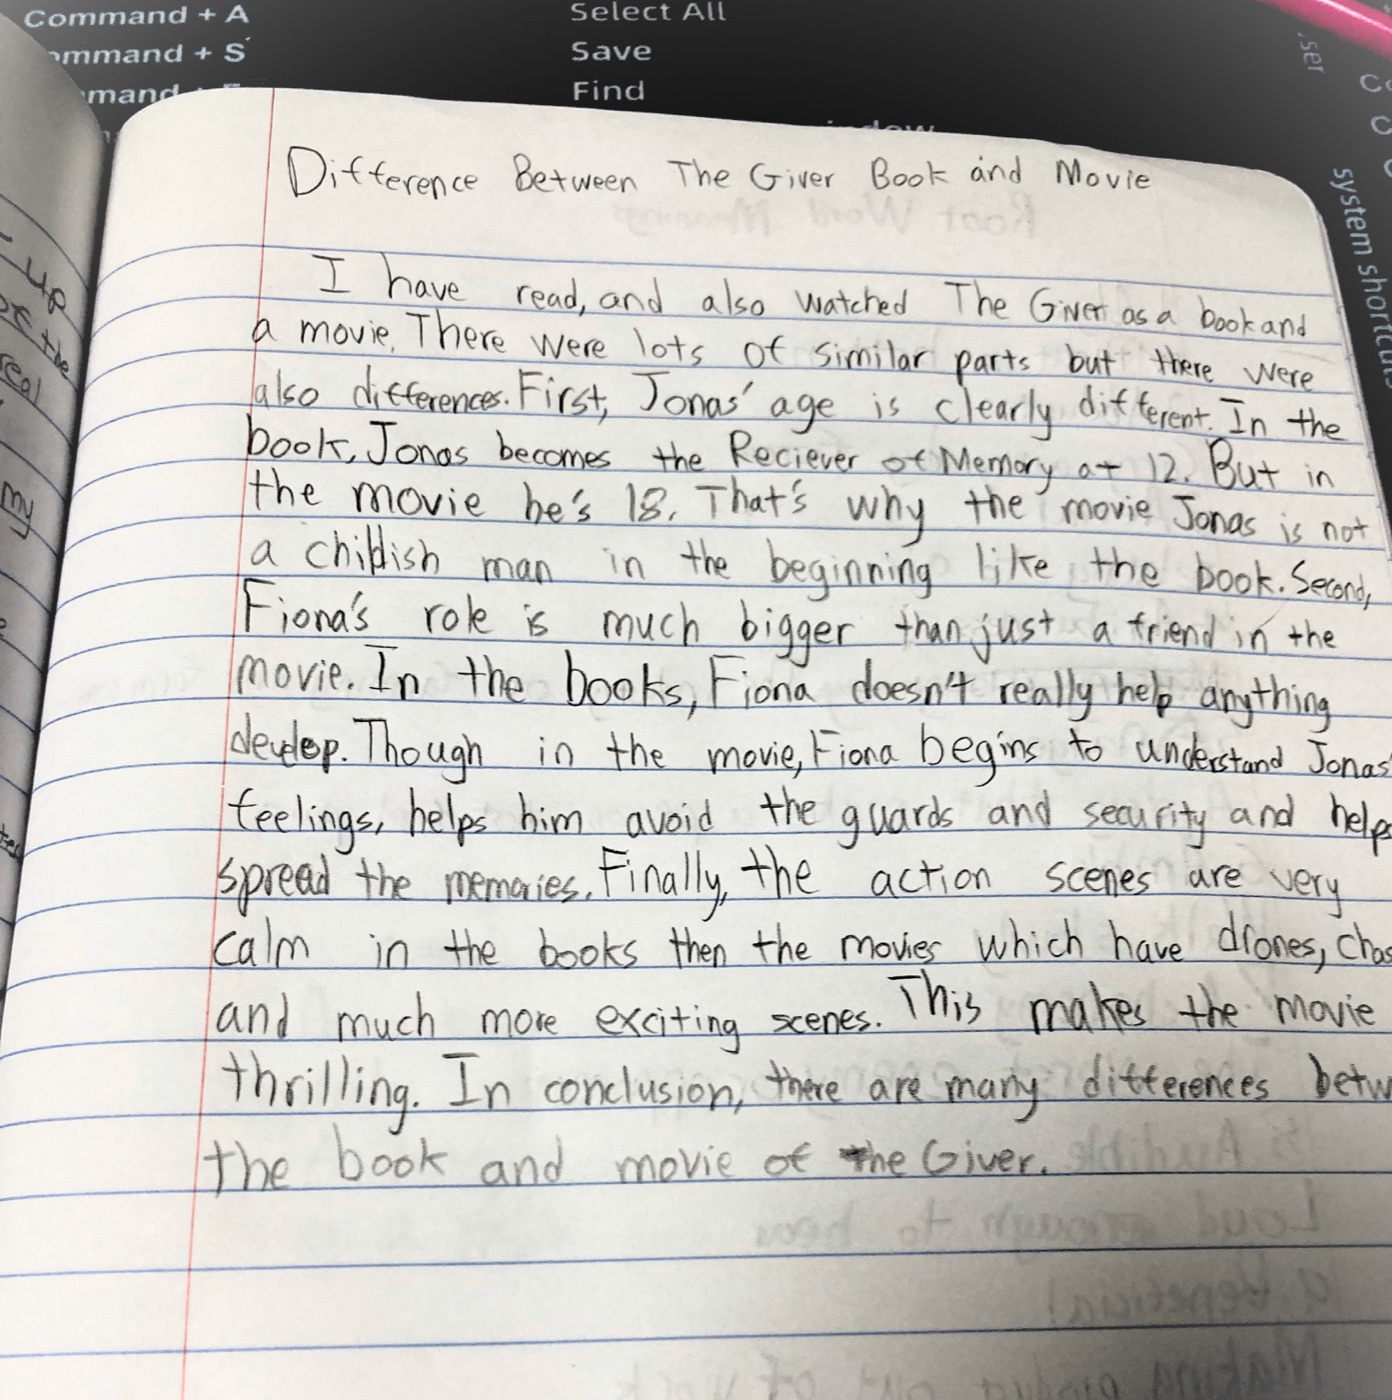 Command + A Select All
ommand + S Save
mand Find
system shortcuts
Difference Between The Giver Book and Movie
I have read, and also watched The Giver as a book and
a movie. There were lots of similar parts but there were
also differences. First, Jonas' age is clearly different. In the
book, Jonas becomes the Reciever of Memory at 12. But in
the movie he's 18. That's why the movie Jonas is not
a childish man in the beginning like the book. Second,
Fiona's role is much bigger than just a friend in the
movie. In the books, Fiona doesn't really help anything
develop. Though in the movie, Fiona begins to understand Jonas'
feelings, helps him avoid the guards and security and helps
spread the memories. Finally, the action scenes are very
calm in the books then the movies which have drones, chas
and much more exciting scenes. This makes the movie
thrilling. In conclusion, there are many differences betw
the book and movie of the Giver.
up
of the
real
my